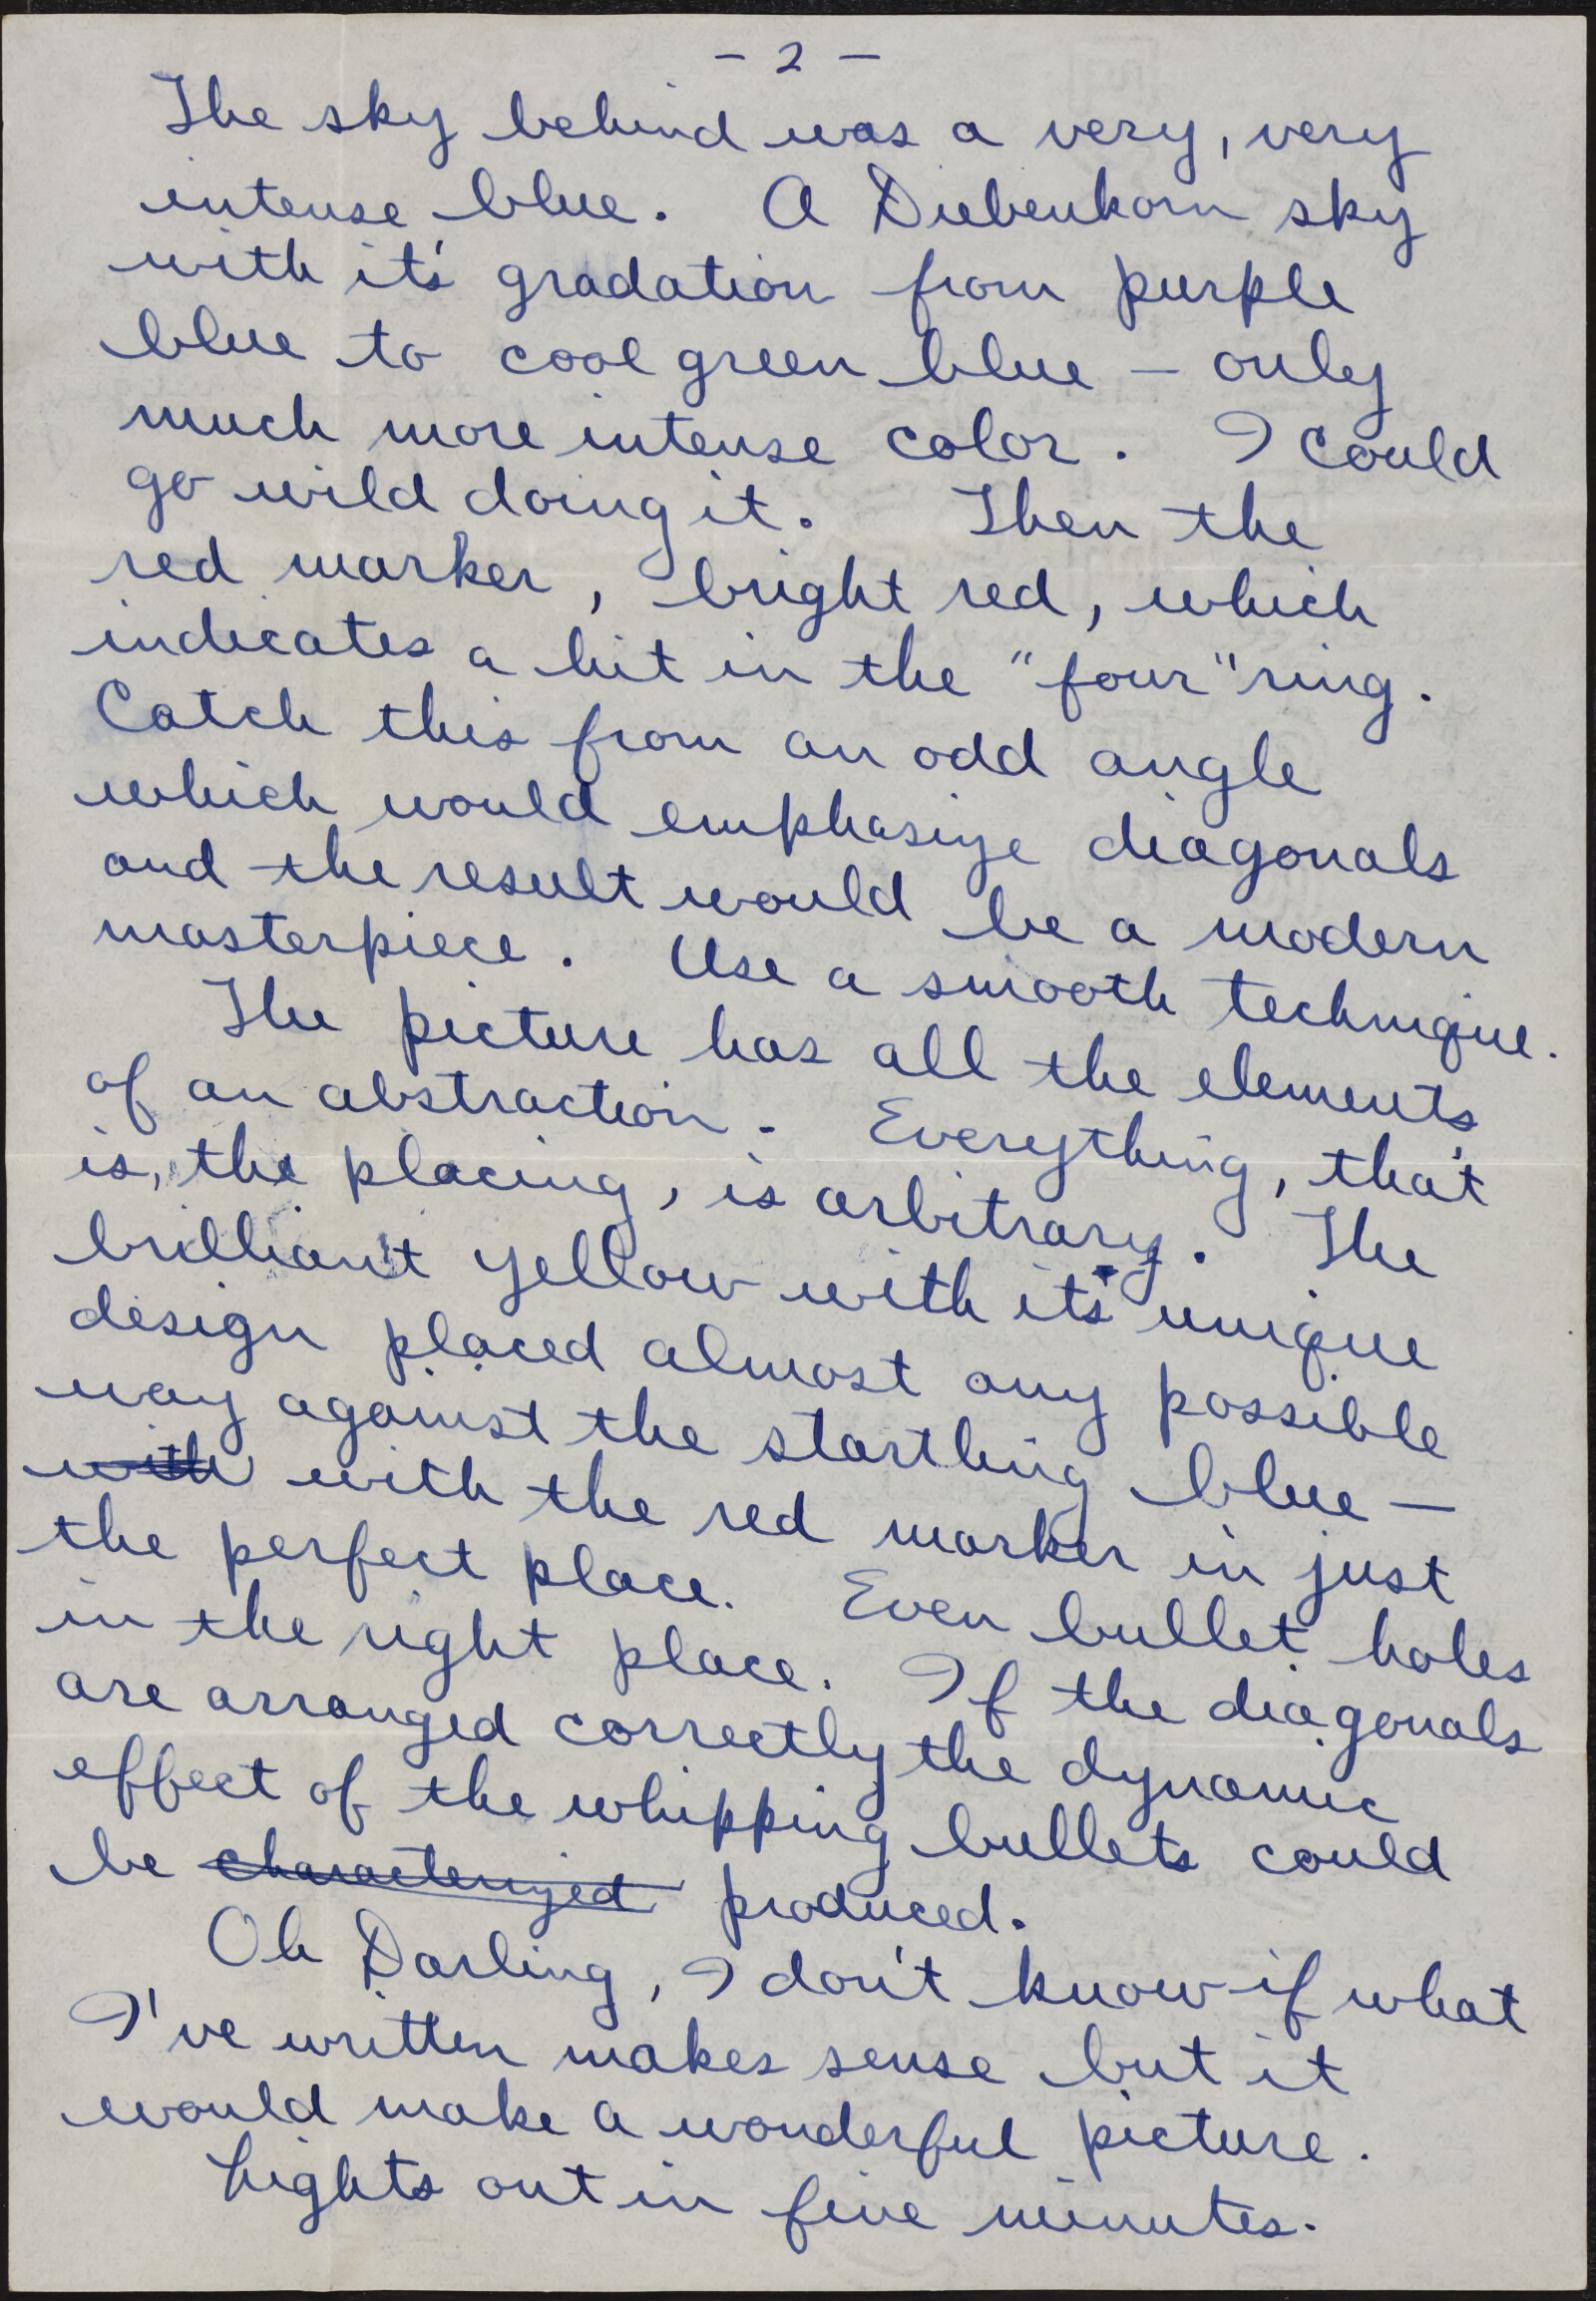 - 2 -
The sky behind was a very, very
intense blue. A Diebenkorn sky
with it's gradation from purple
blue to cool green blue - only
much more intense color. I could
go wild doing it. Then the
red marker, bright red, which
indicates a hit in the "four" ring.
Catch this from an odd angle
which would emphasize diagonals
and the result would be a modern
masterpiece. Use a smooth technique.
The picture has all the elements
of an abstraction. Everything, that
is, the placing, is arbitrary. The
brilliant yellow with it's unique
design placed almost any possible
way against the startling blue —
with with the red marker in just
the perfect place. Even bullet holes
in the right place. If the diagonals
are arranged correctly the dynamic
effect of the whipping bullets could
be characterized produced.
Oh Darling, I don't know if what
I've written makes sense but it
would make a wonderful picture.
Lights out in five minutes.